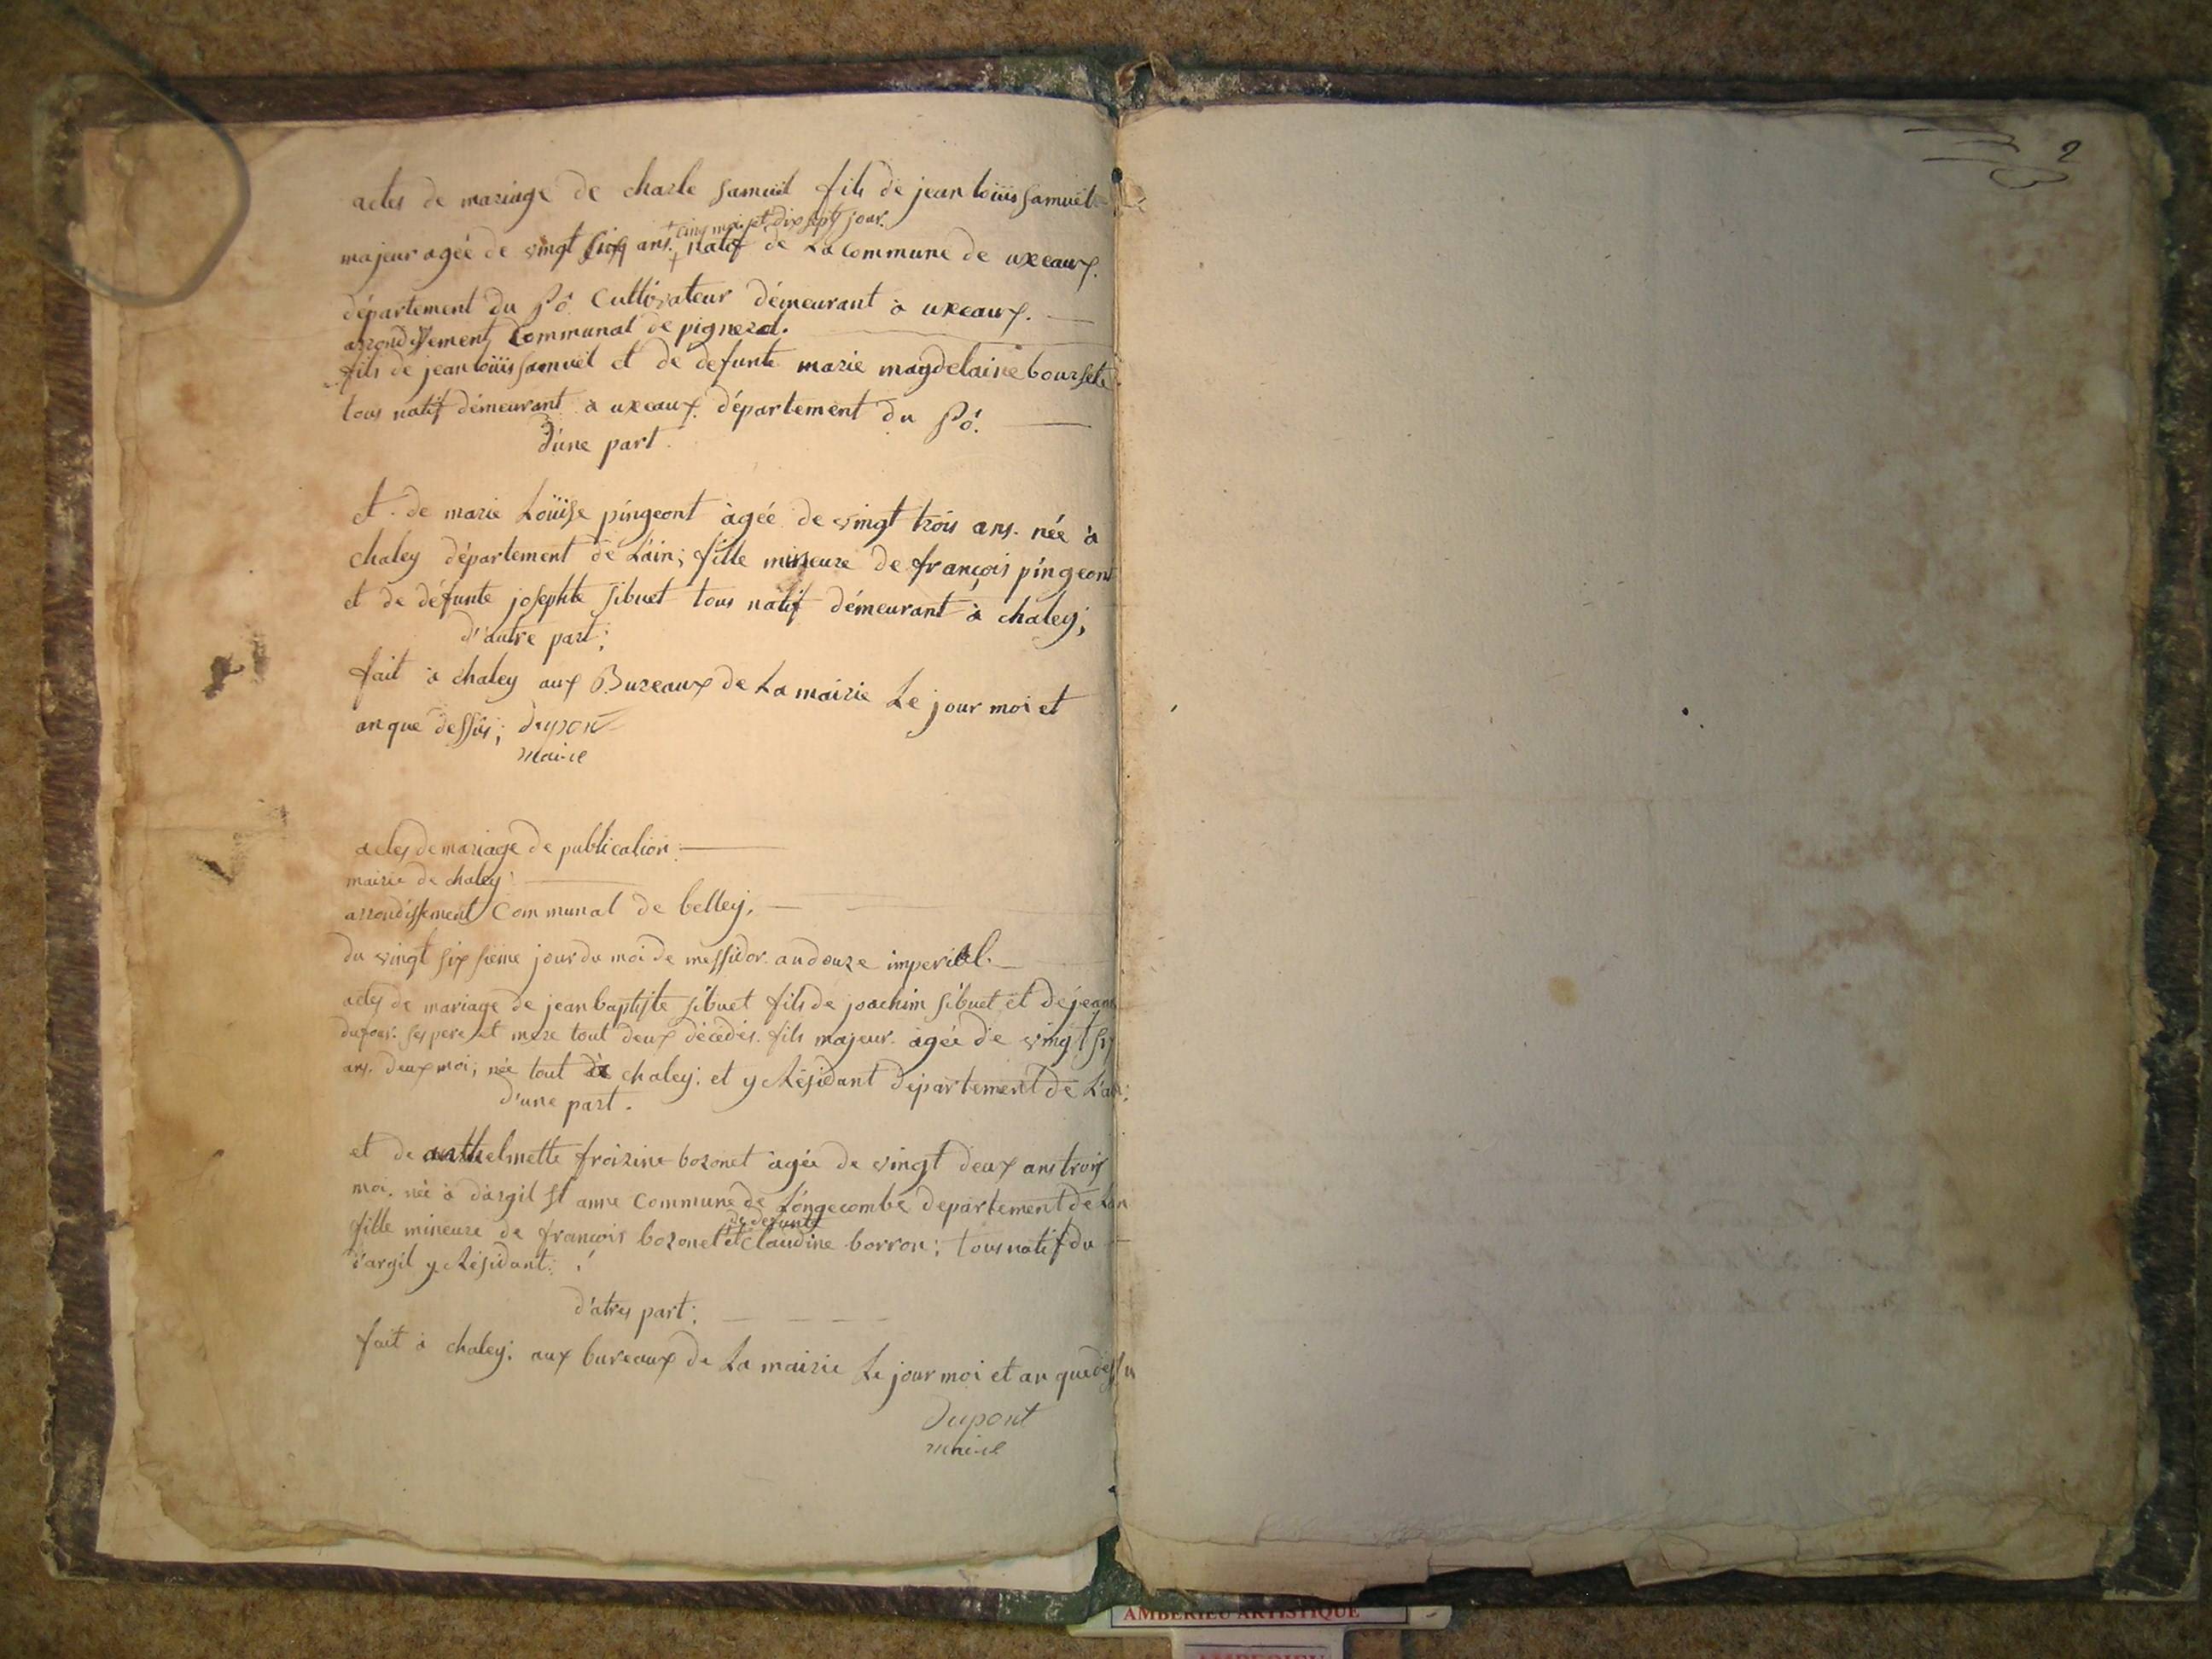 actes de mariage de charle samuël fils de jean loüis samuël
+ cinq moi et dix sept jour.
majeur agée de vingt six ans. + natif de La commune de uxeaux.
département du Pô Cultivateur démeurant à uxeaux.
arrondissement Communal de pignerol.
fils de jean loüis samuël et de defunte marie magdelaine bourset
tous natif démeurant à uxeaux département du Pô.
d'une part.
et de marie Loüise pingeont àgée de vingt trois ans. née à
chaley département de L'ain; fille mineure de françois pingeont
et de défunte josephte sibuet tous natif démeurant à chaley;
d'autre part;
fait à chaley aux Bureaux de La mairie Le jour moi et
an que dessus; dupont
maire
actes de mariage de publication
mairie de chaley
arrondissement Communal de belley.
du vingt six sieme jour du moi de messidor an douze imperial.
actes de mariage de jean baptiste sibuet fils de joachim sibuet et de jeane
dufour. ses pere et mere tout deux décédés. fils majeur. àgée de vingt six
ans. deux moi; née tout à chaley; et y Résidant département de L'ain;
d'une part.
et de anthelmette froisine bozonet àgée de vingt deux ans trois
moi. née à dargil st anne Commune de Longecombe departement de Lain
de defunte
fille mineure de françois bozonet et Claudine borron; tous natif du
d'argil y Résidant;
d'atres part;
fait à chaley; aux bureaux de La mairie Le jour moi et an que dessu
Dupont
maire
2
AMBERIEU ARTISTIQUE
AMBERIEU